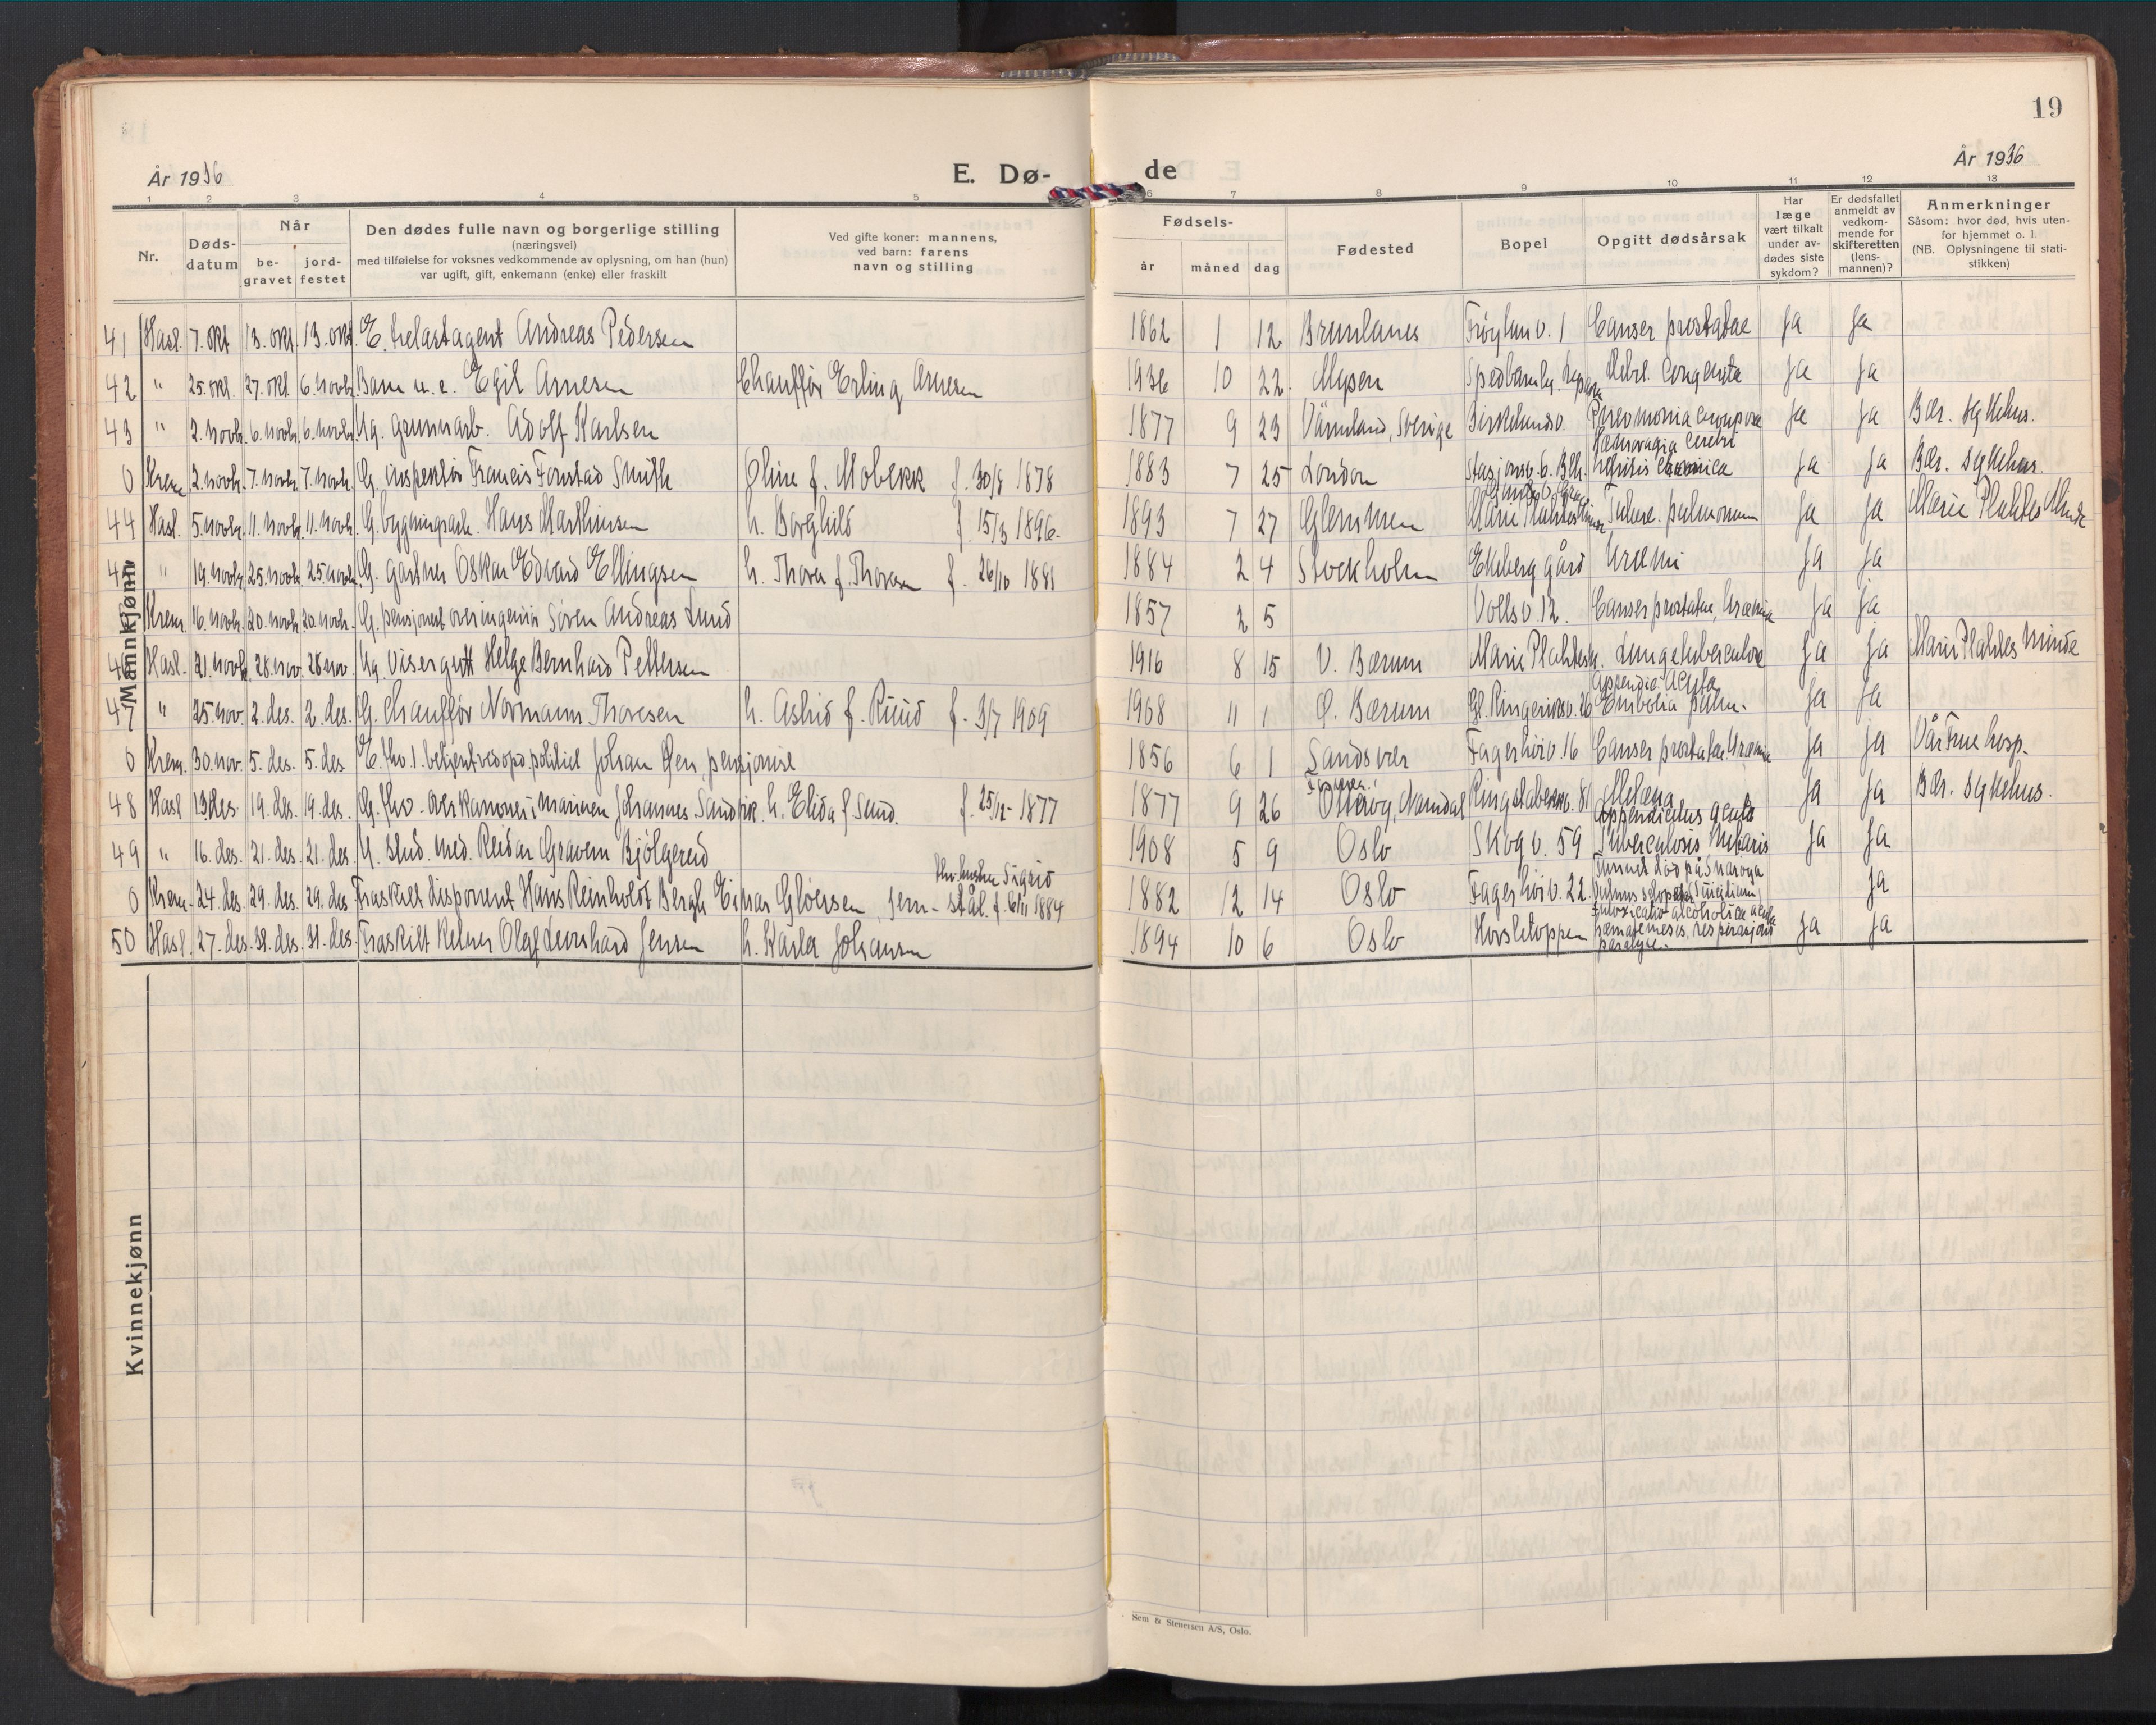 19
År 1936
E. Dø-
de
År 1936
1 2 3 4 5 6 7 8 9 10 11 12 13
Nr.
Døds-
datum
Når
be-
gravet
jord-
festet
Den dødes fulle navn og borgerlige stilling
(næringsvei)
med tilføielse for voksnes vedkommende av oplysning, om han (hun)
var ugift, gift, enkemann (enke) eller fraskilt
Ved gifte koner: mannens,
ved barn: farens
navn og stilling
Fødsels-
år måned dag
Fødested
Bopel
Opgitt dødsårsak
Har
læge
vært tilkalt
under av-
dødes siste
sykdom?
Er dødsfallet
anmeldt av
vedkom-
mende for
skifteretten
(lens-
mannen)?
Anmerkninger
Såsom: hvor død, hvis uten-
for hjemmet o. l.
(NB. Oplysningene til stati-
stikken)
41 Hasl. 7. okt 13. okt. 13. okt. E. trelastagent Andreas Pedersen 1862 1 12 Brunlanes Frøylandv. 1 Canser prostatae Ja Ja
42 " 25. okt. 27. okt. 6. novbr. Barn u. e. Egil Arnesen Chauffør Erling Arnesen 1936 10 22. Mysen Spedbarnhj. Debil. Congenita Ja Ja
43 " 2. novbr. 6. novbr. 6. novbr. Ug. grunnarb. Adolf Karlsen 1877 9 23 Värmland, Sverige Birkelundv. Pneomonia crouposa Ja Ja Bær. sykehus.
Hæmoragia Cerebri
0 Krem. 2. novbr. 7. novbr. 7. novbr. G. inspektør Francis Fonstad Smith Oline f. Mobekk f. 30/8 1878 1883 7 25 London Stasjonsv. 6. Blh. Nefritis Chronica Ja Ja Bær. sykehus.
44 Hasl. 5. novbr. 11. novbr. 11. novbr. G. bygningsarb. Hans Marthinsen h. Borghild f. 15/3 1896. 1893 7 27 Glemmen Marie Plahtes Minde Tuberc. pulmonum Ja Ja Marie Plahtes Minde
45 " 19. novbr. 25. novbr. 25. novbr. G. gartner Oskar Edvard Ellingsen h. Thora f. Thoresen f. 26/10 1881 1884 2 4 Stockholm Ekeberg gård Uræmi Ja Ja
0 Krem. 16. novbr. 20. novbr. 20. novbr. G. pensjonert overingeniør Søren Andreas Lund 1857 2 5 Vollsv. 12. Canser prostatae, Uræmia Ja Ja
46 Hasl. 21. novbr. 28. nov. 28 nov. Ug. visergutt Helge Bernhard Pettersen 1916 8 15 V. Bærum Marie Plahtes M. Lungetuberculose Ja Ja Marie Plahtes Minde
Appendic. Acuta
47 " 25. nov. 2. des. 2. des. G. Chauffør Normann Thoresen h. Astrid f. Ruud f. 3/7 1909 1908 11 1 Ø. Bærum Gl. Ringeriksv. 26 Embolia pulm. Ja Ja
0 Krem. 30. nov. 5. des. 5. des E. fhv. 1. betjent ved opd. politiet Johan Øen, pensjonist 1856 6 1 Sandsvær Fagerhøiv. 16 Canser prostatae. Uræmia Ja Ja Vår Frue hosp.
48 Hasl 13 des. 19. des. 19. des. G. fhv. overkanoner i marinen Johannes Sandvik. h. Elida f. Sund. f. 25/12 - 1877 1877 9 26 Otterøy, Namdal Ringstabekkv. 81 Melæna Ja Ja Bær. sykehus.
Appendicitus acuta
49 " 16. des. 21. des. 21. des. U. stud. med. Reidar Gravem Bjølgerud 1908 5 9 Oslo Skogv. 59 Tuberculosis Miliaris Ja Ja
fhv. hustru Sigrid
Funnet død på Snarøya
0 Krem. 24. des. 29. des. 29. des Fraskilt disponent Hans Reinholdt Bergh Einar Gløersen, jern- stål. f. 6/11 1884 1882 12 14 Oslo Fagerhøiv. 22. Vulnus sclopetar. Suicidium Ja
Intoxicatio alcoholica acuta
50 Hasl. 27. des. 31. des. 31. des. Fraskilt kelner Olaf Leonhard Jensen h. Karla Johansen 1894 10 6 Oslo Høvsletoppen hæmatemesis, respirasjons Ja Ja
paralyse.
Mannkjønn
Kvinnekjønn
Sem & Stenersen A/S, Oslo.